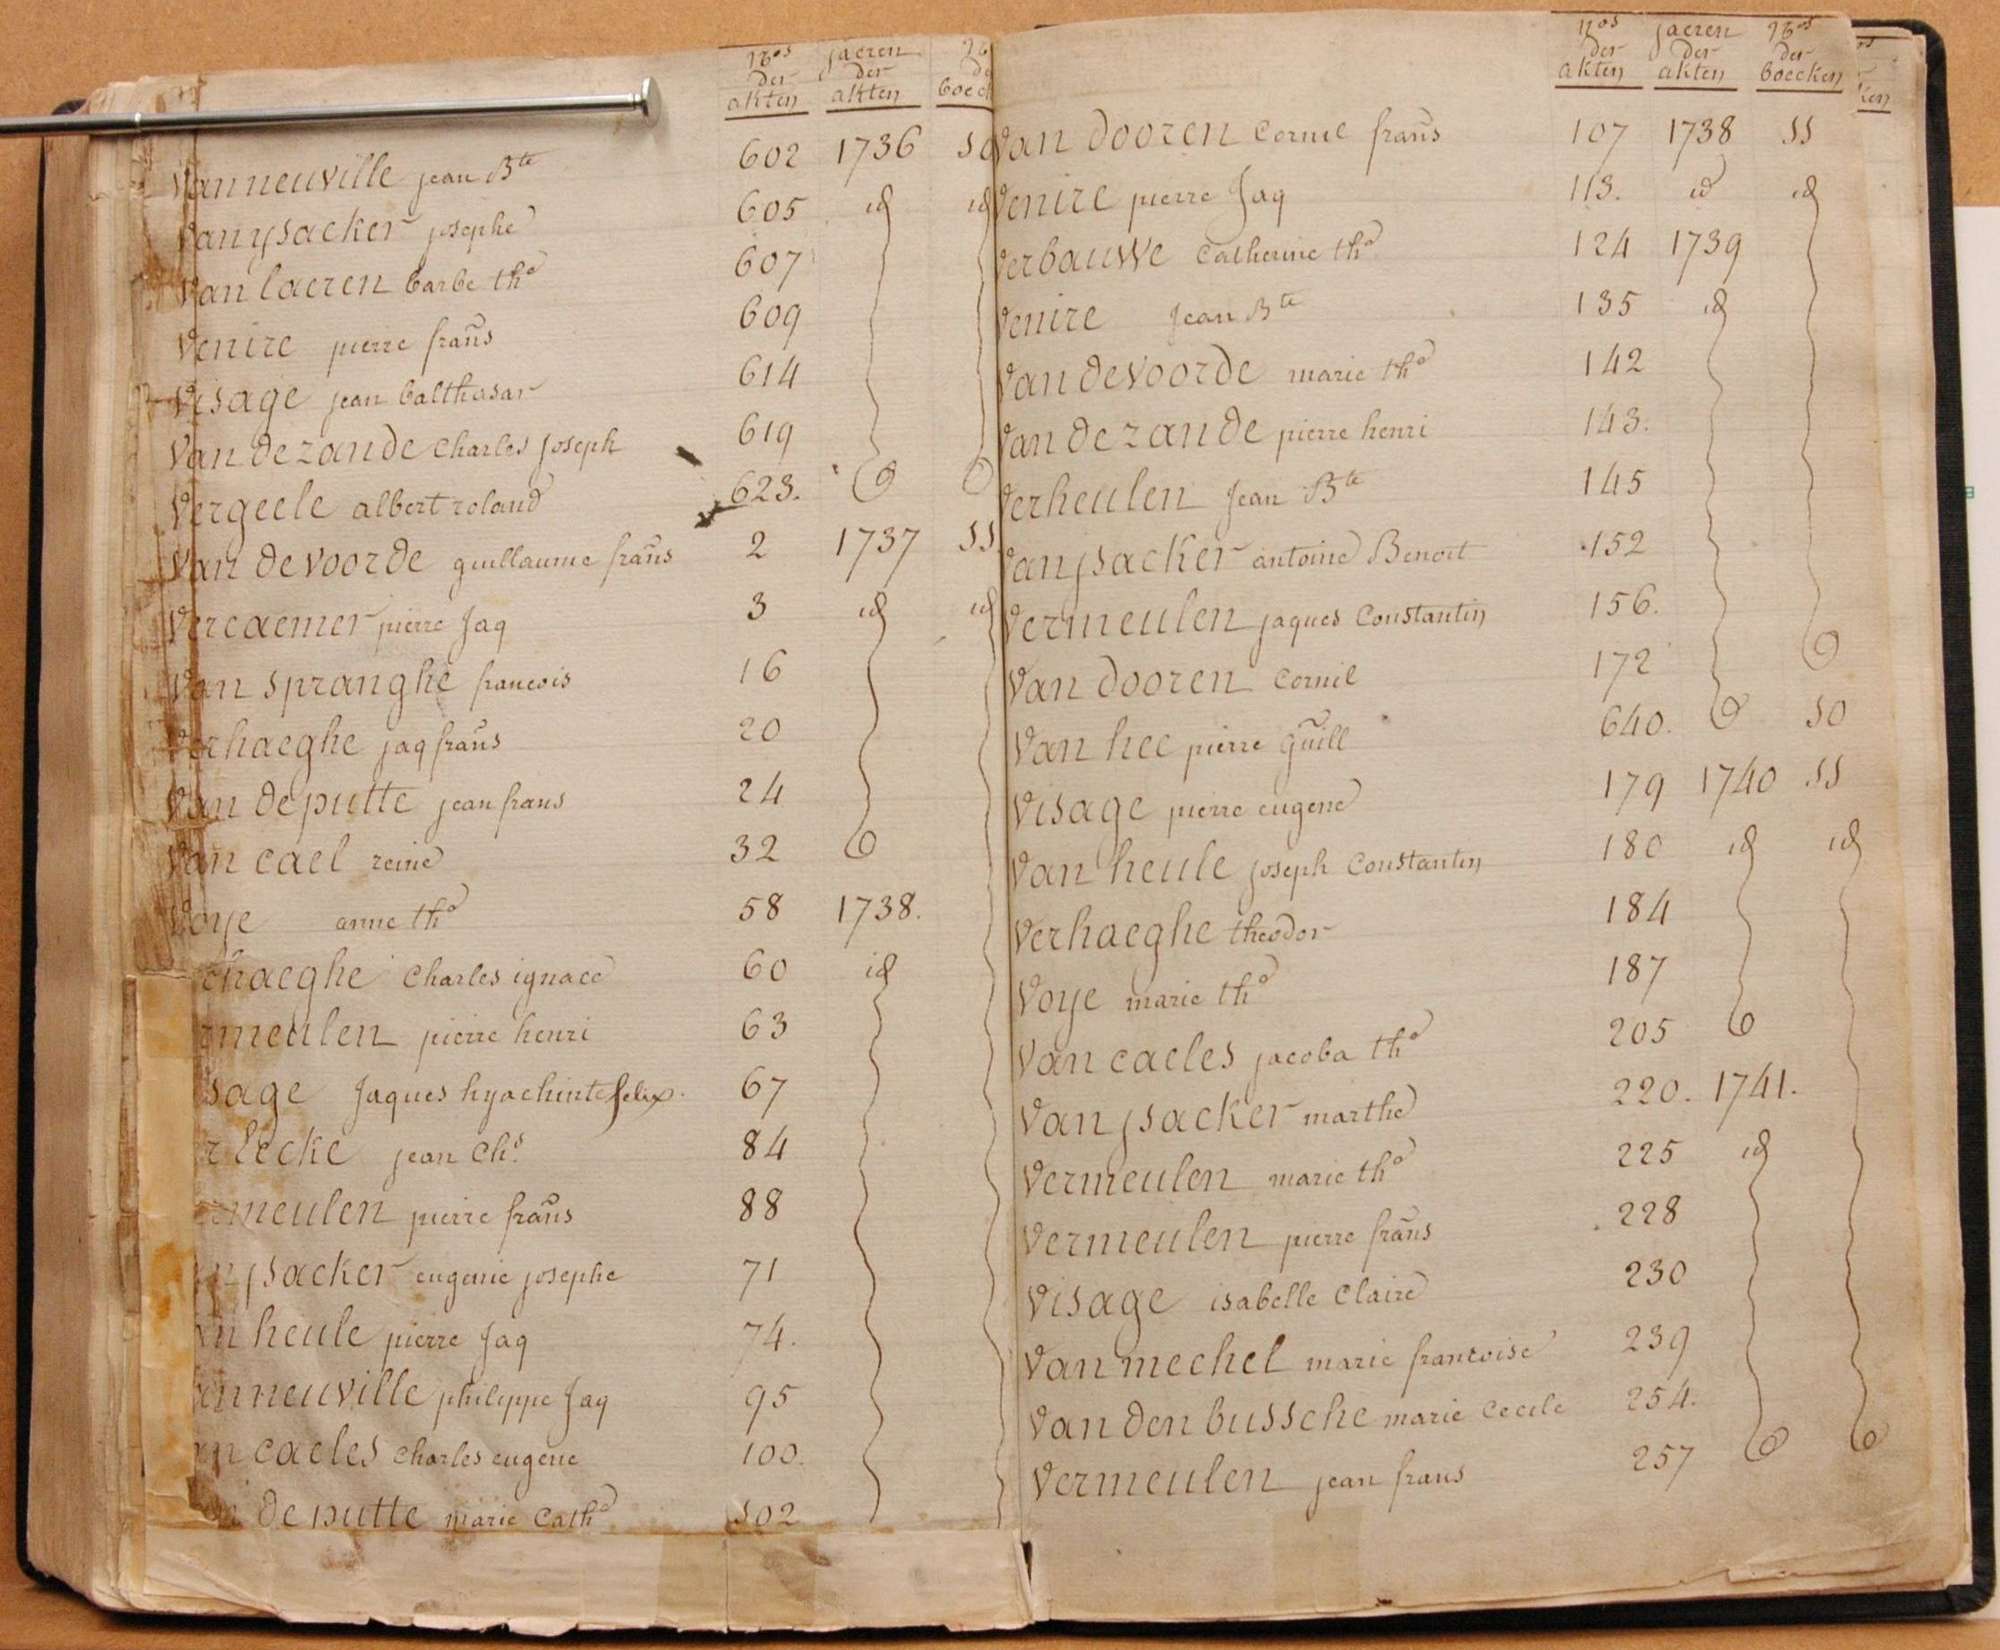 nos der akten jaeren der akten
Vanneuville jean Bte 602 1736
Vanysacker josephe 605 id id
Van laeren barbe the 607
Venire pierre frans 609
Visage jean balthasar 614
Van de zande charles joseph 619
Vergeele albert roland 623.
Van de voorde guillaume frans 2 1737 55
Vercaemer pierre jaq 3 id id
Van spranghe francois 16
Verhaeghe jaq frans 20
Van de putte jean frans 24
Van cael reine 32
Voye anne the 58 1738.
rhaeghe charles ignace 60 id
rmeulen pierre henri 63
sage jaques hyachinte felix. 67
r lecke jean chs. 84
ermeulen pierre frans 88
nysacker eugenie josephe 71
an heule pierre jaq 74.
anneuville philippe jaq 95
an caeles charles eugene 100.
de putte marie cathe 102
nos der akten jaeren der akten nos der boecken
Van dooren cornil frans 107 1738 55
Venire pierre jaq 113. id id
Verbauwe catherine the 124 1739
Venire jean Bte 135 id
Van de voorde marie the 142
Van de zande pierre henri 143.
Verheulen jean Bte 145
Vanysacker antoine Benoit 152
Vermeulen jaques constantin 156.
Van dooren cornil 172
Van hee pierre guill 640. 50
Visage pierre eugene 179 1740 55
Van heule joseph constantin 180 id id
Verhaeghe theodor 184
Voye marie the 187
Van caeles jacoba the 205
Vanysacker marthe 220. 1741.
Vermeulen marie the 225 id
Vermeulen pierre frans 228
Visage isabelle claire 230
Van mechel marie francoise 239
Van den bussche marie cecile 254.
Vermeulen jean frans 257